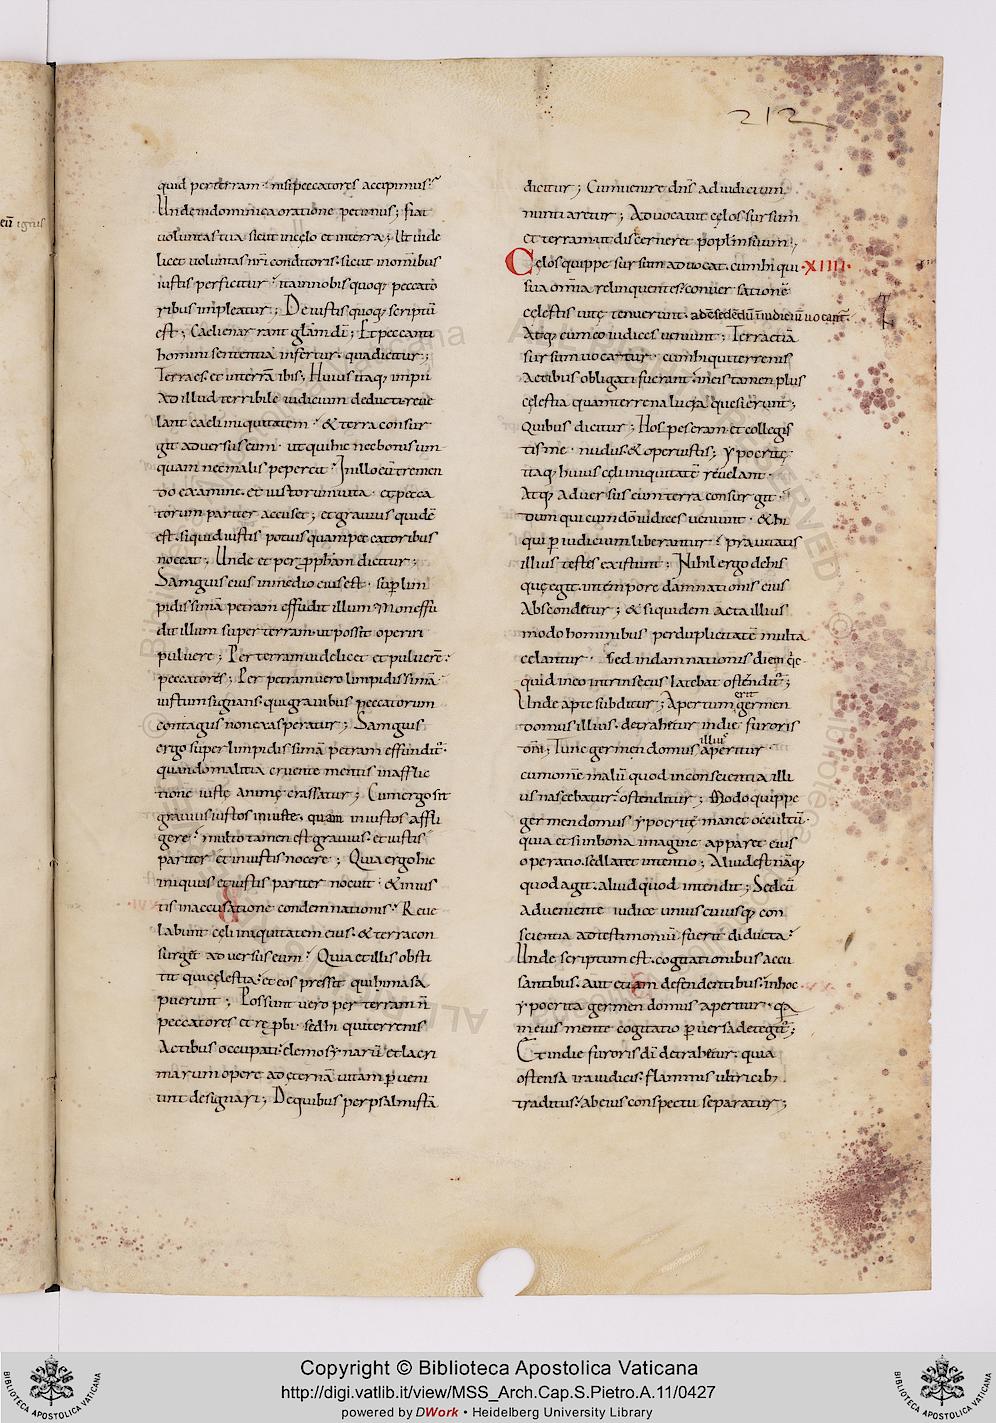 212
quid per terram nisi peccatores accipimus?
Unde in dominica oratione petimus; fiat
uoluntas tua sicut in cęlo et in terra; Ut uide
licet uoluntas nr̄i conditoris sicut in omnibus
iustis perficitur ita in nobis quoq; peccato
ribus impleatur; De iustis quoq; scriptū
est; Caeli enarrant glām dī; Et peccanti
homini sententia infertur qua dicitur;
Terra es et in terrā ibis; Huius itaq; impii
Ad illud terribile iudicium deducti reue
lant caeli iniquitatem & terra consur
git aduersus eum ut qui hic nec bonis um
quam nec malis pepercit In illo eū tremen
do examine et iustorum uita et pecca
torum pariter accuset; et grauius quidē
est si quid iustis potius quam peccatoribus
noceat; Unde et per p̄pphām dicitur;
Sanguis eius in medio eius est sup̄ lim
pidissimā petram effudit illum Non effu
dit illum super terram ut possit operiri
puluere; Per terram uidelicet et puluerē
peccatores; Per petram uero limpidissimā
iustum signans qui grauibus peccatorum
contagiis non exasperatur; Sanguis
ergo super limpidissimā petram effunditur
quando malitia cruente mentis in afflic
tione iustę animę crassatur; Cum ergo sit
grauius iustos iniuste quam iniustos affli
gere multo tamen est grauius et iustis
pariter et iniustis nocere; Quia ergo hic
iniquus et iustis pariter nocuit & inius
tis in accusatione condemnationis Reue
labunt cęli iniquitatem eius & terra con
surgit aduersus eum Quia et illis obsti
tit qui cęlestia et eos pressit qui hima sa
puerunt; Possunt uero per terram n̄
peccatores et rępbi sed hi qui terrenis
Actibus occupati elemosynarū et lacri
marum opere ad ęternā uitam p̄ueni
unt designari; De quibus per psalmistā
dicitur; Cum uenire dn̄s ad iudicium
nuntiaretur; Aduocauit cęlos sursum
et terram ut discerneret poplm suum;
Cęlos quippe sursum aduocat cum hi qui ·XIIII·
sua omnia relinquentes conuersationē
cęlestis uitę tenuerunt ad cōsedēdū ī iudiciū uocant͛
Atq; cum eo iudices ueniunt; Terra etiā
sursum uocatur cum hi qui terrenis
Actibus obligati fuerant in eis tamen plus
cęlestia quam terrena lucra quesierunt;
Quibus dicitur; Hospes eram et collegis
tis me nudus & operuistis; ypocritę
itaq; huius cęli iniquitatē reuelant
Atq; aduersus eum terra consurgit
dum qui cum dō iudices ueniunt & hi
qui p̄ iudicium liberantur prauitatis
illius testes existunt; Nihil ergo de his
quę egit in tempore damnationis eius
Absconditur; & si quidem acta illius
modo hominibus per duplicitatē multa
celantur Sed in damnationis die in q̄ę
quid in eo intrinsecus latebat ostenditur;
Unde apte subditur; Apertum erit germen
domus illius detrahetur in die furoris
dn̄i; Tunc germen domus illius aperitur
cum omne malū quod in conscientia illi
us nascebatur ostenditur; Modo quippe
germen domus ypocritę manet occultū
quia etsi in bona imagine apparet eius
operatio sed latet intentio; Aliud est nāq;
quod agit aliud quod intendit; Sed cū
adueniente iudice uniuscuiusq; con
scientia ad testimoniū fuerit diducta
Unde scriptum est cogitationibus accu
santibus aut etiam defendentibus in hoc
ypocrita germen domus aperitur q̄a
in eius mente cogitatio p̄uersa detegit͛;
Et in die furoris dī detrahetur quia
ostensa ira iudicis flammis ultricib;
traditus ab eius conspectu separatur;
Copyright © Biblioteca Apostolica Vaticana
http://digi.vatlib.it/view/MSS_Arch.Cap.S.Pietro.A.11/0427
powered by DWork • Heidelberg University Library
BIBLIOTECA APOSTOLICA VATICANA
BIBLIOTECA APOSTOLICA VATICANA